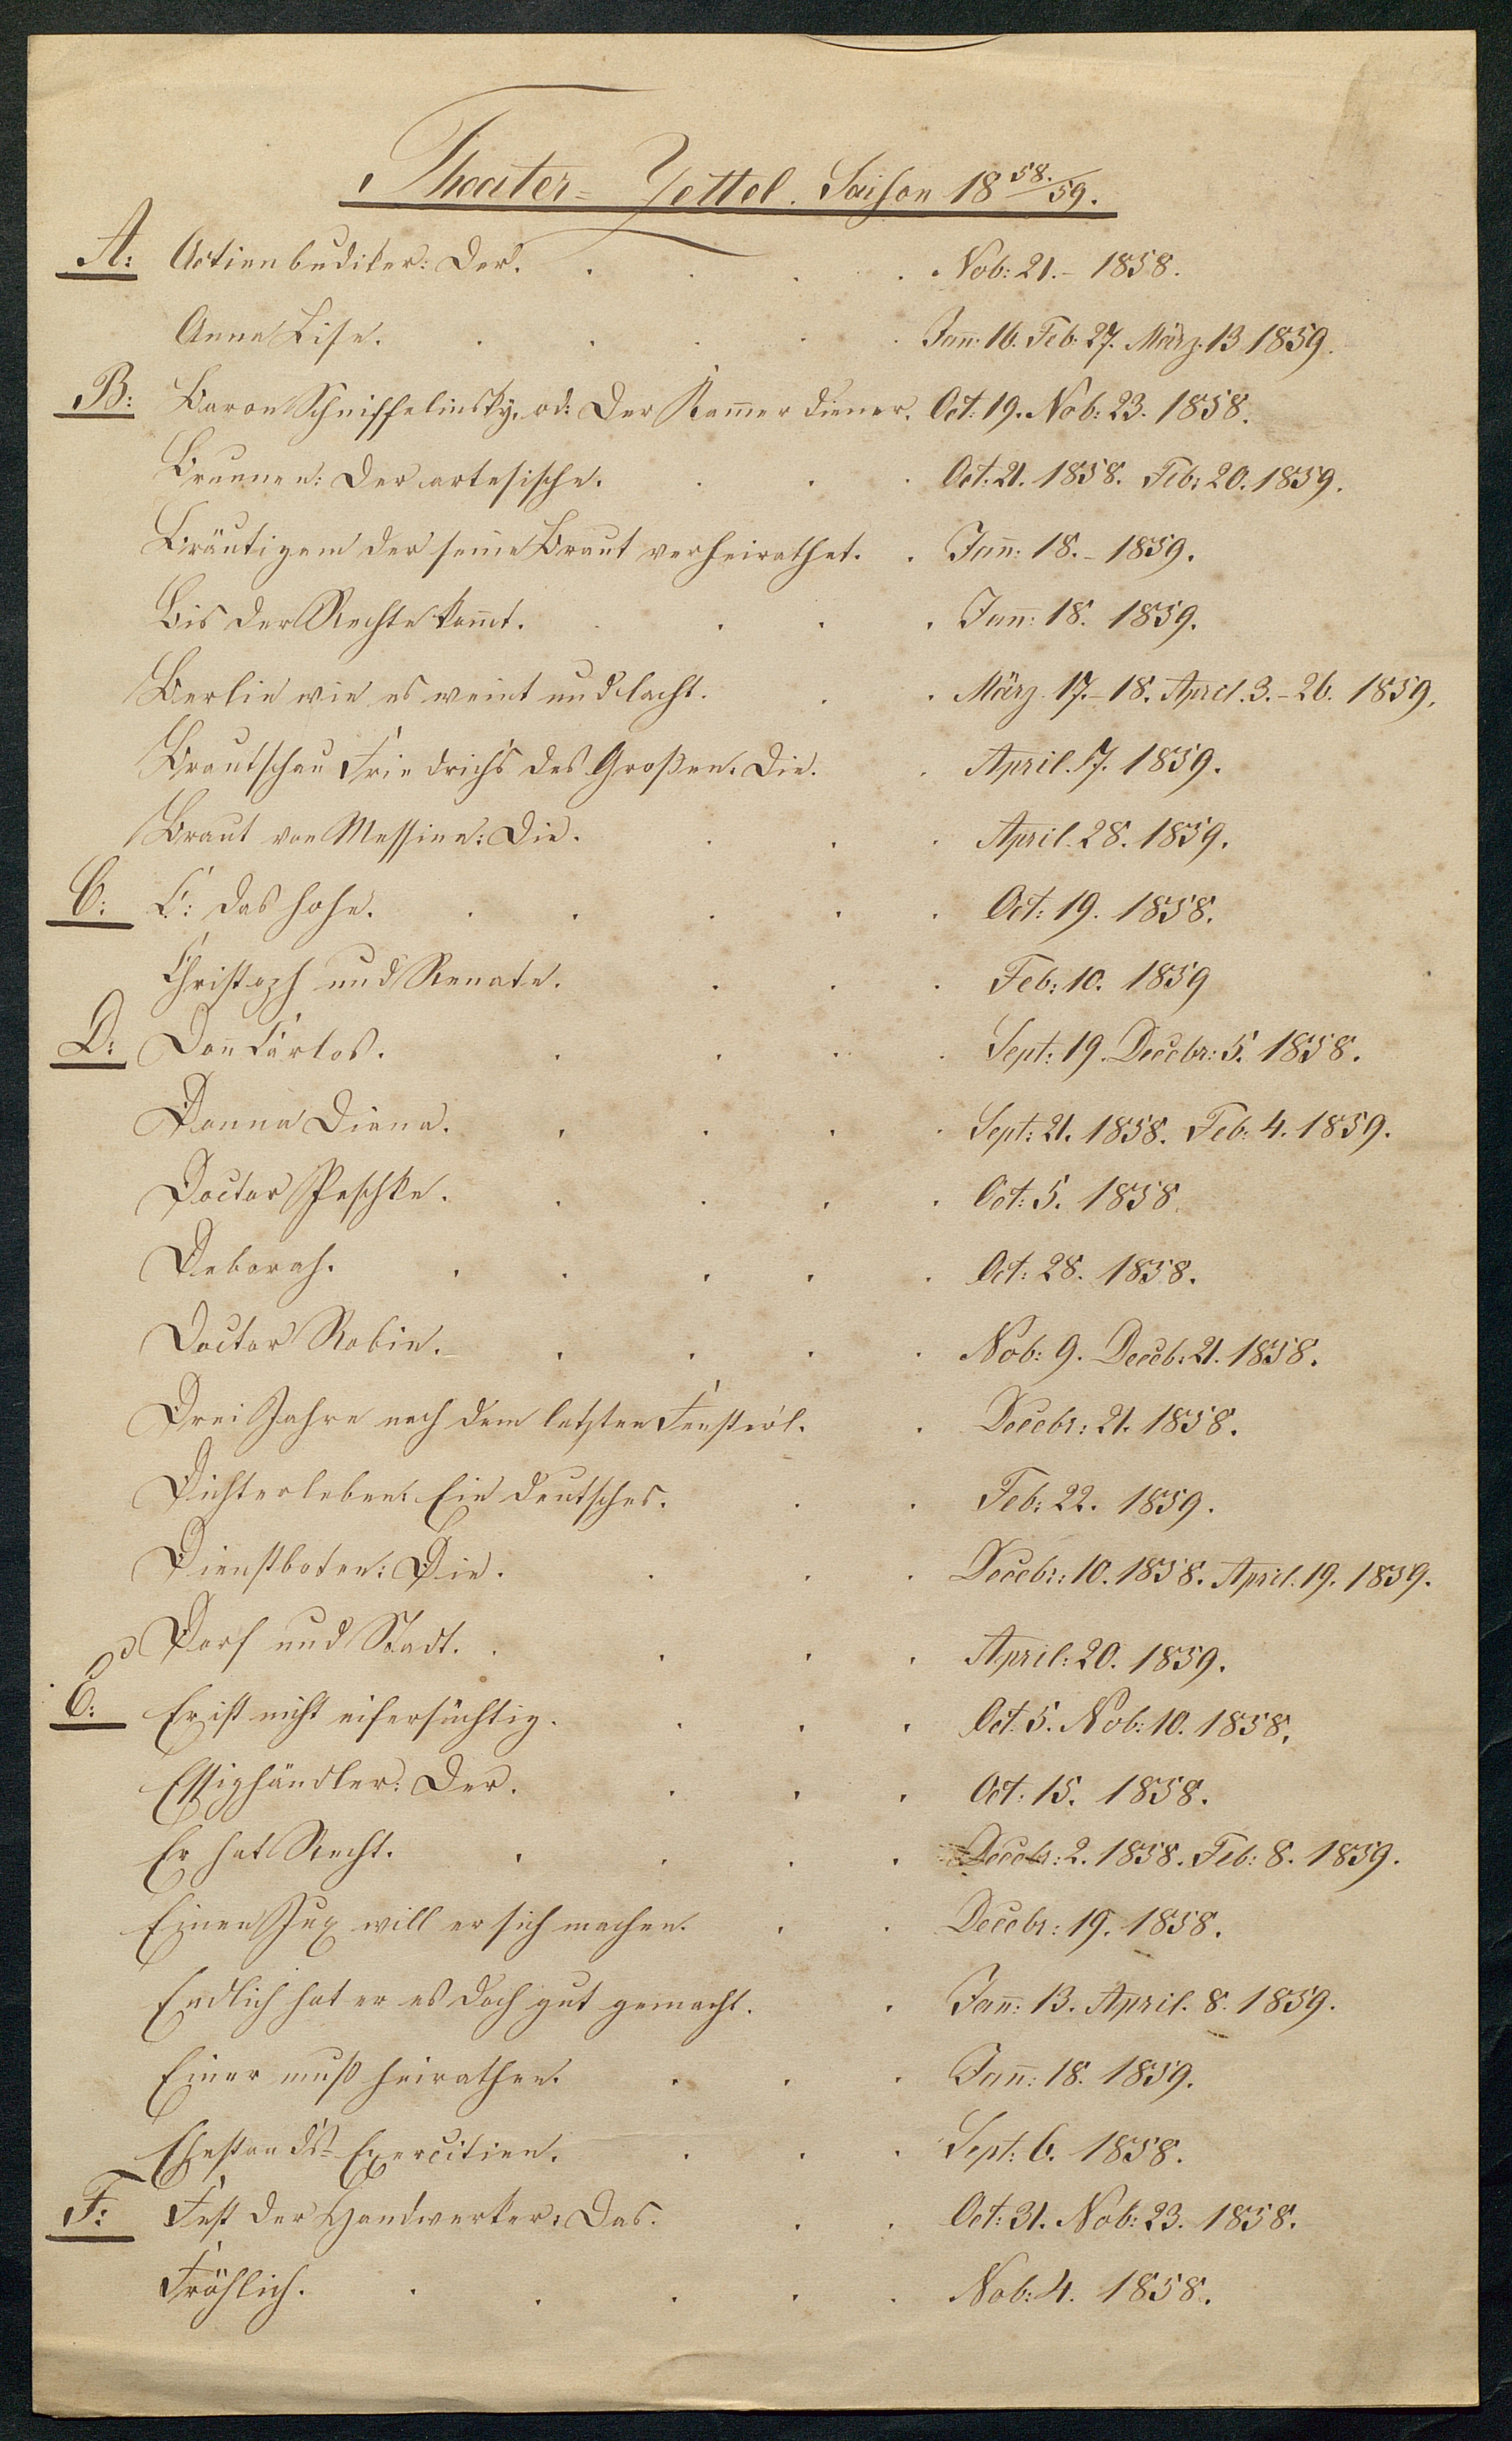 Theater-Zettel. Saison 18 58./59.
A: Actienbudiker: Der. . . . . . Nob: 21.- 1858.
Anna Lise. . . . . . Jañ: 16. Feb: 27. März. 13 1859.
B: Baron Schniffelinsky, od: Der Kam̄erdiener. Oct: 19. Nob: 23. 1858.
Brunnen: Der artesische. . . . Oct: 21. 1858. Feb: 20. 1859.
Bräutigam der seine Braut verheirathet. . Jañ: 18.- 1859.
Bis der Rechte kom̄t. . . . . Jañ: 18. 1859.
Berlin wie es weint und lacht. . . März. 17.-18. April. 3.-26. 1859.
Brautschau Friedrich's des Großen. Die. . April. 17. 1859.
Braut von Messina: Die. . . . April. 28. 1859.
C: C: das hohe. . . . . . Oct: 19. 1858.
Christoph und Renate. . . . Feb: 10. 1859
D: Doñ Carlos. . . . . Sept: 19. Decebr: 5. 1858.
Donna Diana. . . . . Sept: 21. 1858. Feb: 4. 1859.
Doctor Peschke. . . . . Oct: 5. 1858.
Deborah. . . . . . Oct: 28. 1858.
Doctor Robin. . . . . Nob: 9. Deceb: 21. 1858.
Drei Jahre nach dem letzten Fensterl. . Decebr: 21. 1858.
Dichterleben: Ein deutsches. . . Feb: 22. 1859.
Dienstboten: Die. . . . Decebr: 10. 1858. April: 19. 1859.
Dorf und Stadt. . . . . April: 20. 1859.
E: Er ist nicht eifersüchtig. . . . Oct: 5. Nob: 10. 1858.
Essighändler: Der. . . . Oct: 15. 1858.
Er hat Recht. . . . . Decebr: 2. 1858. Feb: 8. 1859.
Einen Jux will er sich machen. . . Decebr: 19. 1858.
Endlich hat er es doch gut gemacht. . Jañ: 13. April. 8. 1859.
Einer muß heirathen. . . . Jañ: 18. 1859.
Ehestands-Exercitien. . . . Sept: 6. 1858.
F: Fest der Handwerker: Das. . . Oct: 31. Nob: 23. 1858.
Fröhlich. . . . . . Nob: 4. 1858.